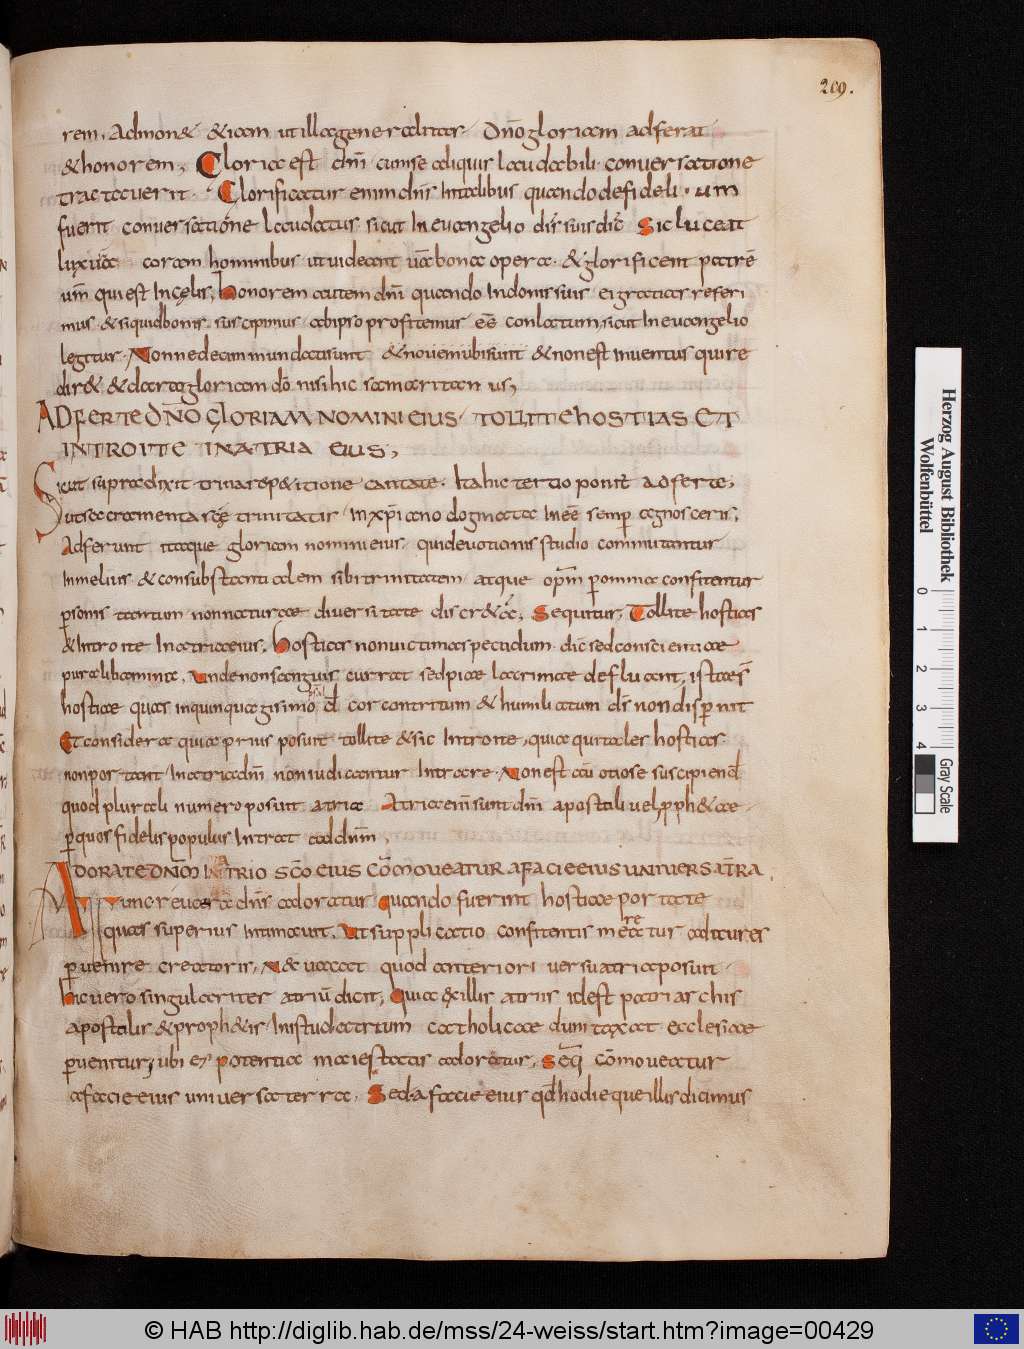 209.
rem. Admon& &iam ut illa generalitas dn̄o gloriam adferat
& honorem; Gloria est dn̄i cum se aliquis laudabili conuersatione
tractauerit. Glorificatur enim dn̄s In talibus quando defideli um
fuerit conuersatione laudatus sicut In euangelio dis̄ suis dic̄ Sic luceat
lux ur̄a coram hominibus ut uideant ur̄a bona opera & glorificent patrē
um̄ qui est In cęlis; honorem autem dn̄i quando In donis suis ei gratias referi
mus & siquid bonis suscipimus ab ipso profitemur eē conlatum, sicut In euangelio
legitur Nonne decem mundati sunt & nouem ubi sunt & non est inuentus qui re
dir& & dar& gloriam dō nisi hic samaritan us;
ADFERTE DN̄O GLORIAM NOMINI EIUS TOLLITE hOSTIAS ET
INTROITE IN ATRIA EIUS;
Sicut supra dixit trina rep&itione cantate. Ita hic tertio ponit adferte;
ut sacramenta scē trinitatis In xp̄iano dogmate Ineē semp agnosceris;
Adferunt itaque gloriam nomini eius qui deuotionis studio commutantur
In melius & consubstantialem sibi trinitatem atque op̄m p omnia confitentur
psonis tantum non naturae diuersitate discr&ā; Sequitur; Tollite hostias
& Introite In atria eius; hostias non uictimas pecudum dic̄ sed conscientiae
pura libamina. unde non sanguis currat sed piae lacrimae defluant, istaes̄
hostiae quas in quinquagesimo cor contritum & humiliatum ds̄ non dispnit
Et considera quia prius posuit tollite & sic Introite, quia qui tales hostias
non portant In atria dn̄i non iudicantur Intrare. Non est otiose suscipiend
quod plurali numero posuit atria Atria enī sunt dn̄i apostoli uel pph&ae
p quos fidelis populus Intrat ad dnm̄;
ADORATE DN̄M IN ATRIO SC̄O EIUS COM̄OUEATUR A FACIE EIUS UNIUERSA TR̄A
Tunc reuera dn̄s adoratur quando fuerint hostiae portate
quas superius Intimauit. Ut supplicatio confitentis mereatur ad aures
puenire creatoris. quod anteriori uersu atria posuit
hic uero singulariter atriū dicit; Quia ex illis atriis id est patriarchis
apostolis & proph&is In istud atrium catholicae dumtaxat ecclesiae
puenitur, ubi & potentia maiestatis adoratur. Seq̄ cōmoueatur
afacie eius uniuersa terra. Sed a facie eius qd hodieque illis dicimus
Herzog August Bibliothek
Wolfenbüttel
0 1 2 3 4
Gray Scale
© HAB http://diglib.hab.de/mss/24-weiss/start.htm?image=00429